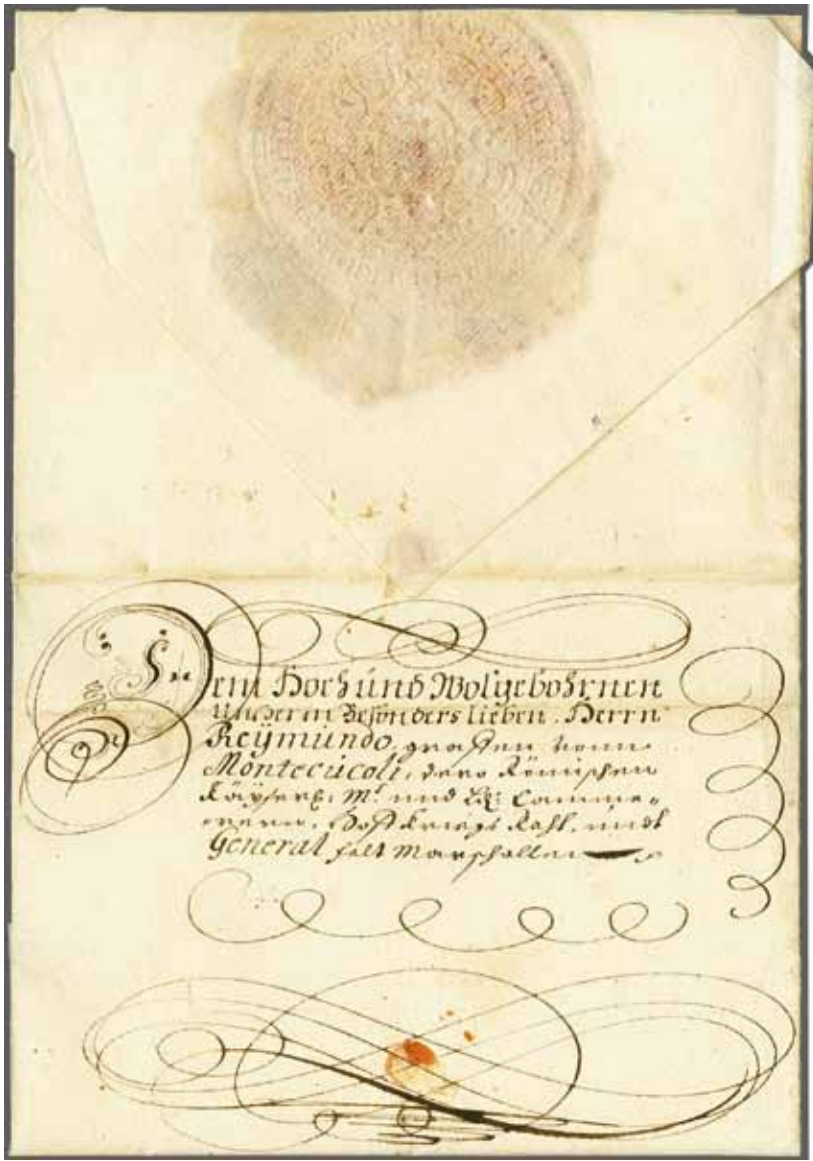 Dem Hoch und Wolgebohrnen
Unserm Besonders lieben. Herrn
Reÿmundo, graffen vonn
Montecúcoli, dero Römischen
Kaÿserl: Mt. und Camme-
rern, Hoff Kriegs Raht, undt
General felt Marschallen